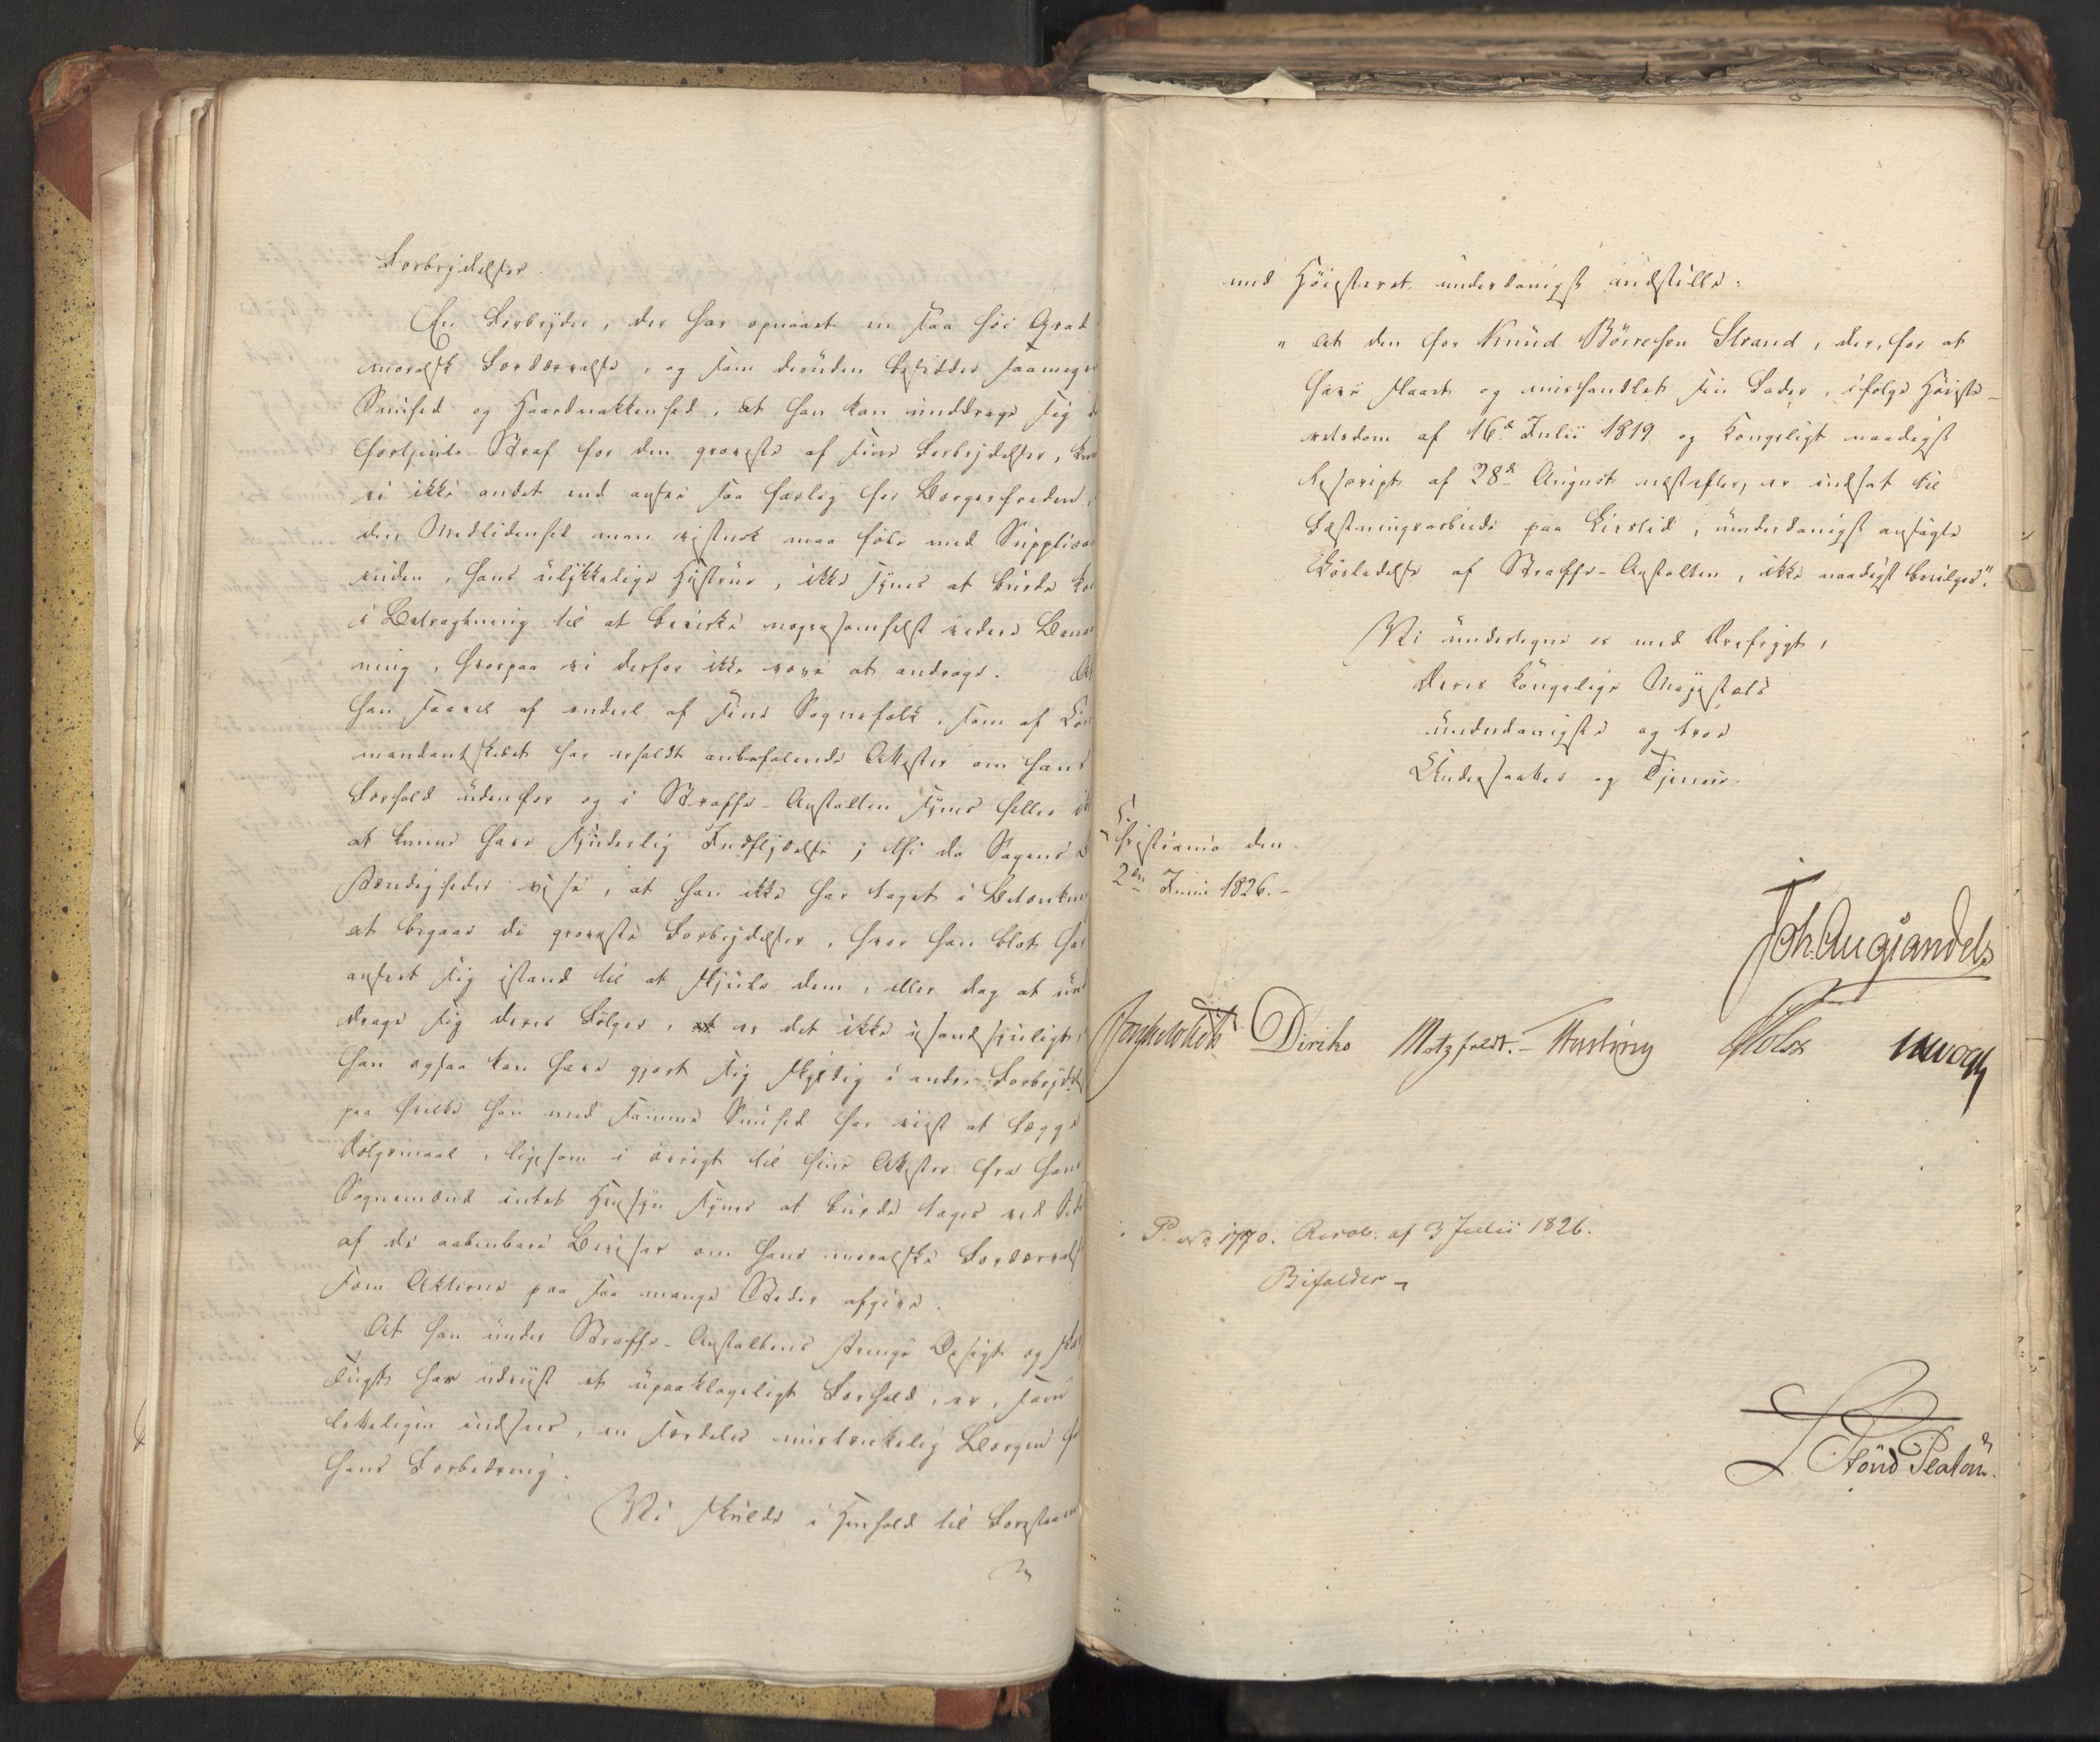 Forbrydelser.
En Forbryder, der har opnaaet en saa høi Grad
moralsk Fordærvelse, og som desuden besidder saamegen
Snuhed og Haardnakkenhed, at han kan unddrage sig
fortjente Straf for den groveste af sine Forbrydelser,
vi ikke andet end ansee saa farlig for Borgerfreden,
den Medlidenhed man vistnok maa føle med Supplican
tinden, hans ulykkelige Hustrue, ikke synes at burde
i Betragtning til at bevirke nogensomhelst videre Benaad
ning, hvorpaa vi derfor ikke vove at andrage. At
han saavel af endeel af sine Sognefolk, som af Com
mandantskabet har erholdt anbefalende Attester om hans
Forhold udenfor og i Straffe-Anstalten synes heller
at kunne have synderlig Indflydelse; thi da Sagens
stændigheder vise, at han ikke har taget i Betænkning
at begaae de groveste Forbrydelser, hvor han blot har
anseet sig istand til at skjule dem, eller dog at und
drage sig deres Følger, er det ikke usandsynligt,
han ogsaa kan have gjort sig skyldig i andre Forbrydelser
paa hvilke han med samme Snuhed har viist at lægge
Dølgsmaal, ligesom i øvrigt til hine Attester fra hans
Sognemænd intet Hensyn synes at burde tages ved Siden
af de aabenbare Beviser om hans moralske Fordærvelse
som Akterne paa saa mange Steder afgive.
At han under Straffe-Anstaltens strenge Opsigt og
Tugt har udviist et upaaklageligt Forhold, er, som
letteligen indsees, en særdeles mistænkelig Borgen for
hans Forbedring.
Vi skulde i Henhold til Forestaaende
med Høiesteret underdanigst indstille:
"at den for Knud Börresen Strand, der, for at
have slaaet og mishandlet sin Fader, ifølge Høieste-
retsdom af 16d Julii 1819 og Kongeligt naadigst
Rescript af 28d August næstefter, er indsat til
Fæstningsarbeide paa Livstid, underdanigst ansøgte
Løsladelse af Straffe-Anstalten, ikke naadigst bevilges".
Vi undertegne os med Ærefrygt,
Deres Kongelige Majestæts
underdanigste og troe
Undersaatter og Tjenere.
Christiania den
2den Juni 1826.-
Joh. Aug Sandels
Diriks Motzfeldt.- Fasting Holst
P. No 1770. Resol: af 3 Julii 1826.
Bifaldes